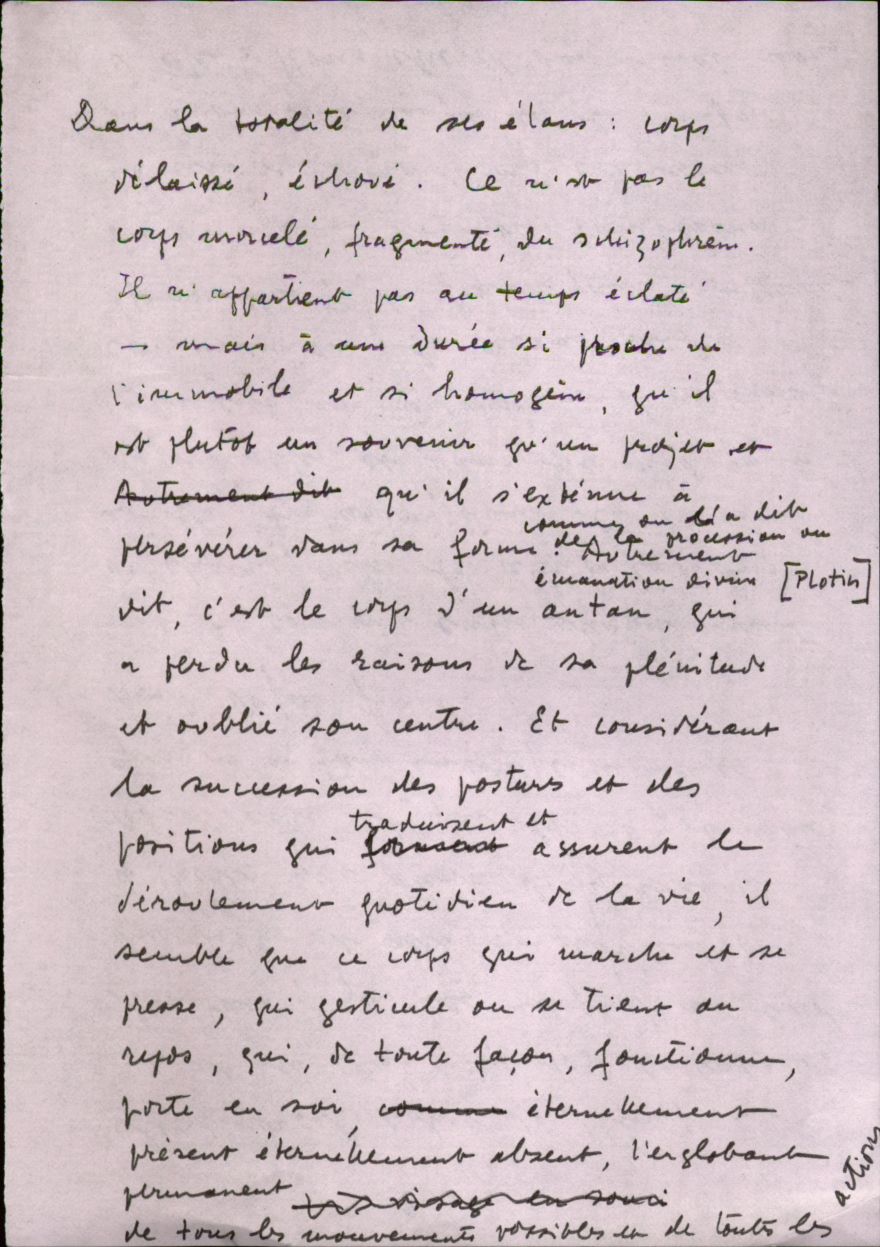 Dans la totalité de ses élans : corps
délaissé, échoué. Ce n'est pas le
corps morcelé, fragmenté, du schizophrène.
Il n'appartient pas au temps éclaté
— mais à une durée si proche de
l'immobile et si homogène, qu'il
est plutôt un souvenir qu'un projet et
Autrement dit qu'il s'exténue à
comme on l'a dit
persévérer dans sa forme. de la procession ou
Autrement
émanation divine [Plotin]
dit, c'est le corps d'un antan, qui
a perdu les raisons de sa plénitude
et oublié son centre. Et considérant
la succession des postures et des
traduisent et
positions qui forment assurent le
déroulement quotidien de la vie, il
semble que ce corps qui marche et se
presse, qui gesticule ou se tient au
repos, qui, de toute façon, fonctionne,
porte en soi, comme éternellement
présent éternellement absent, l'englobant
permanent visage en souci
de tous les mouvements possibles et de toutes les
actions